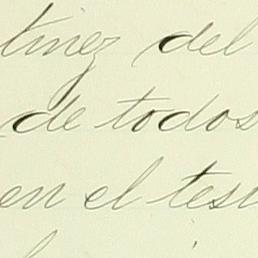 tinez del
de todos
en el tes